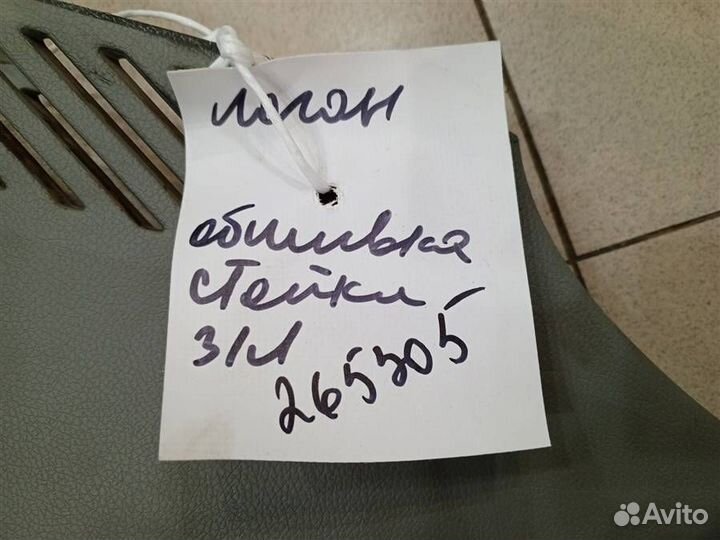 логан
обшивка
стойки
з/л
265305
Avito